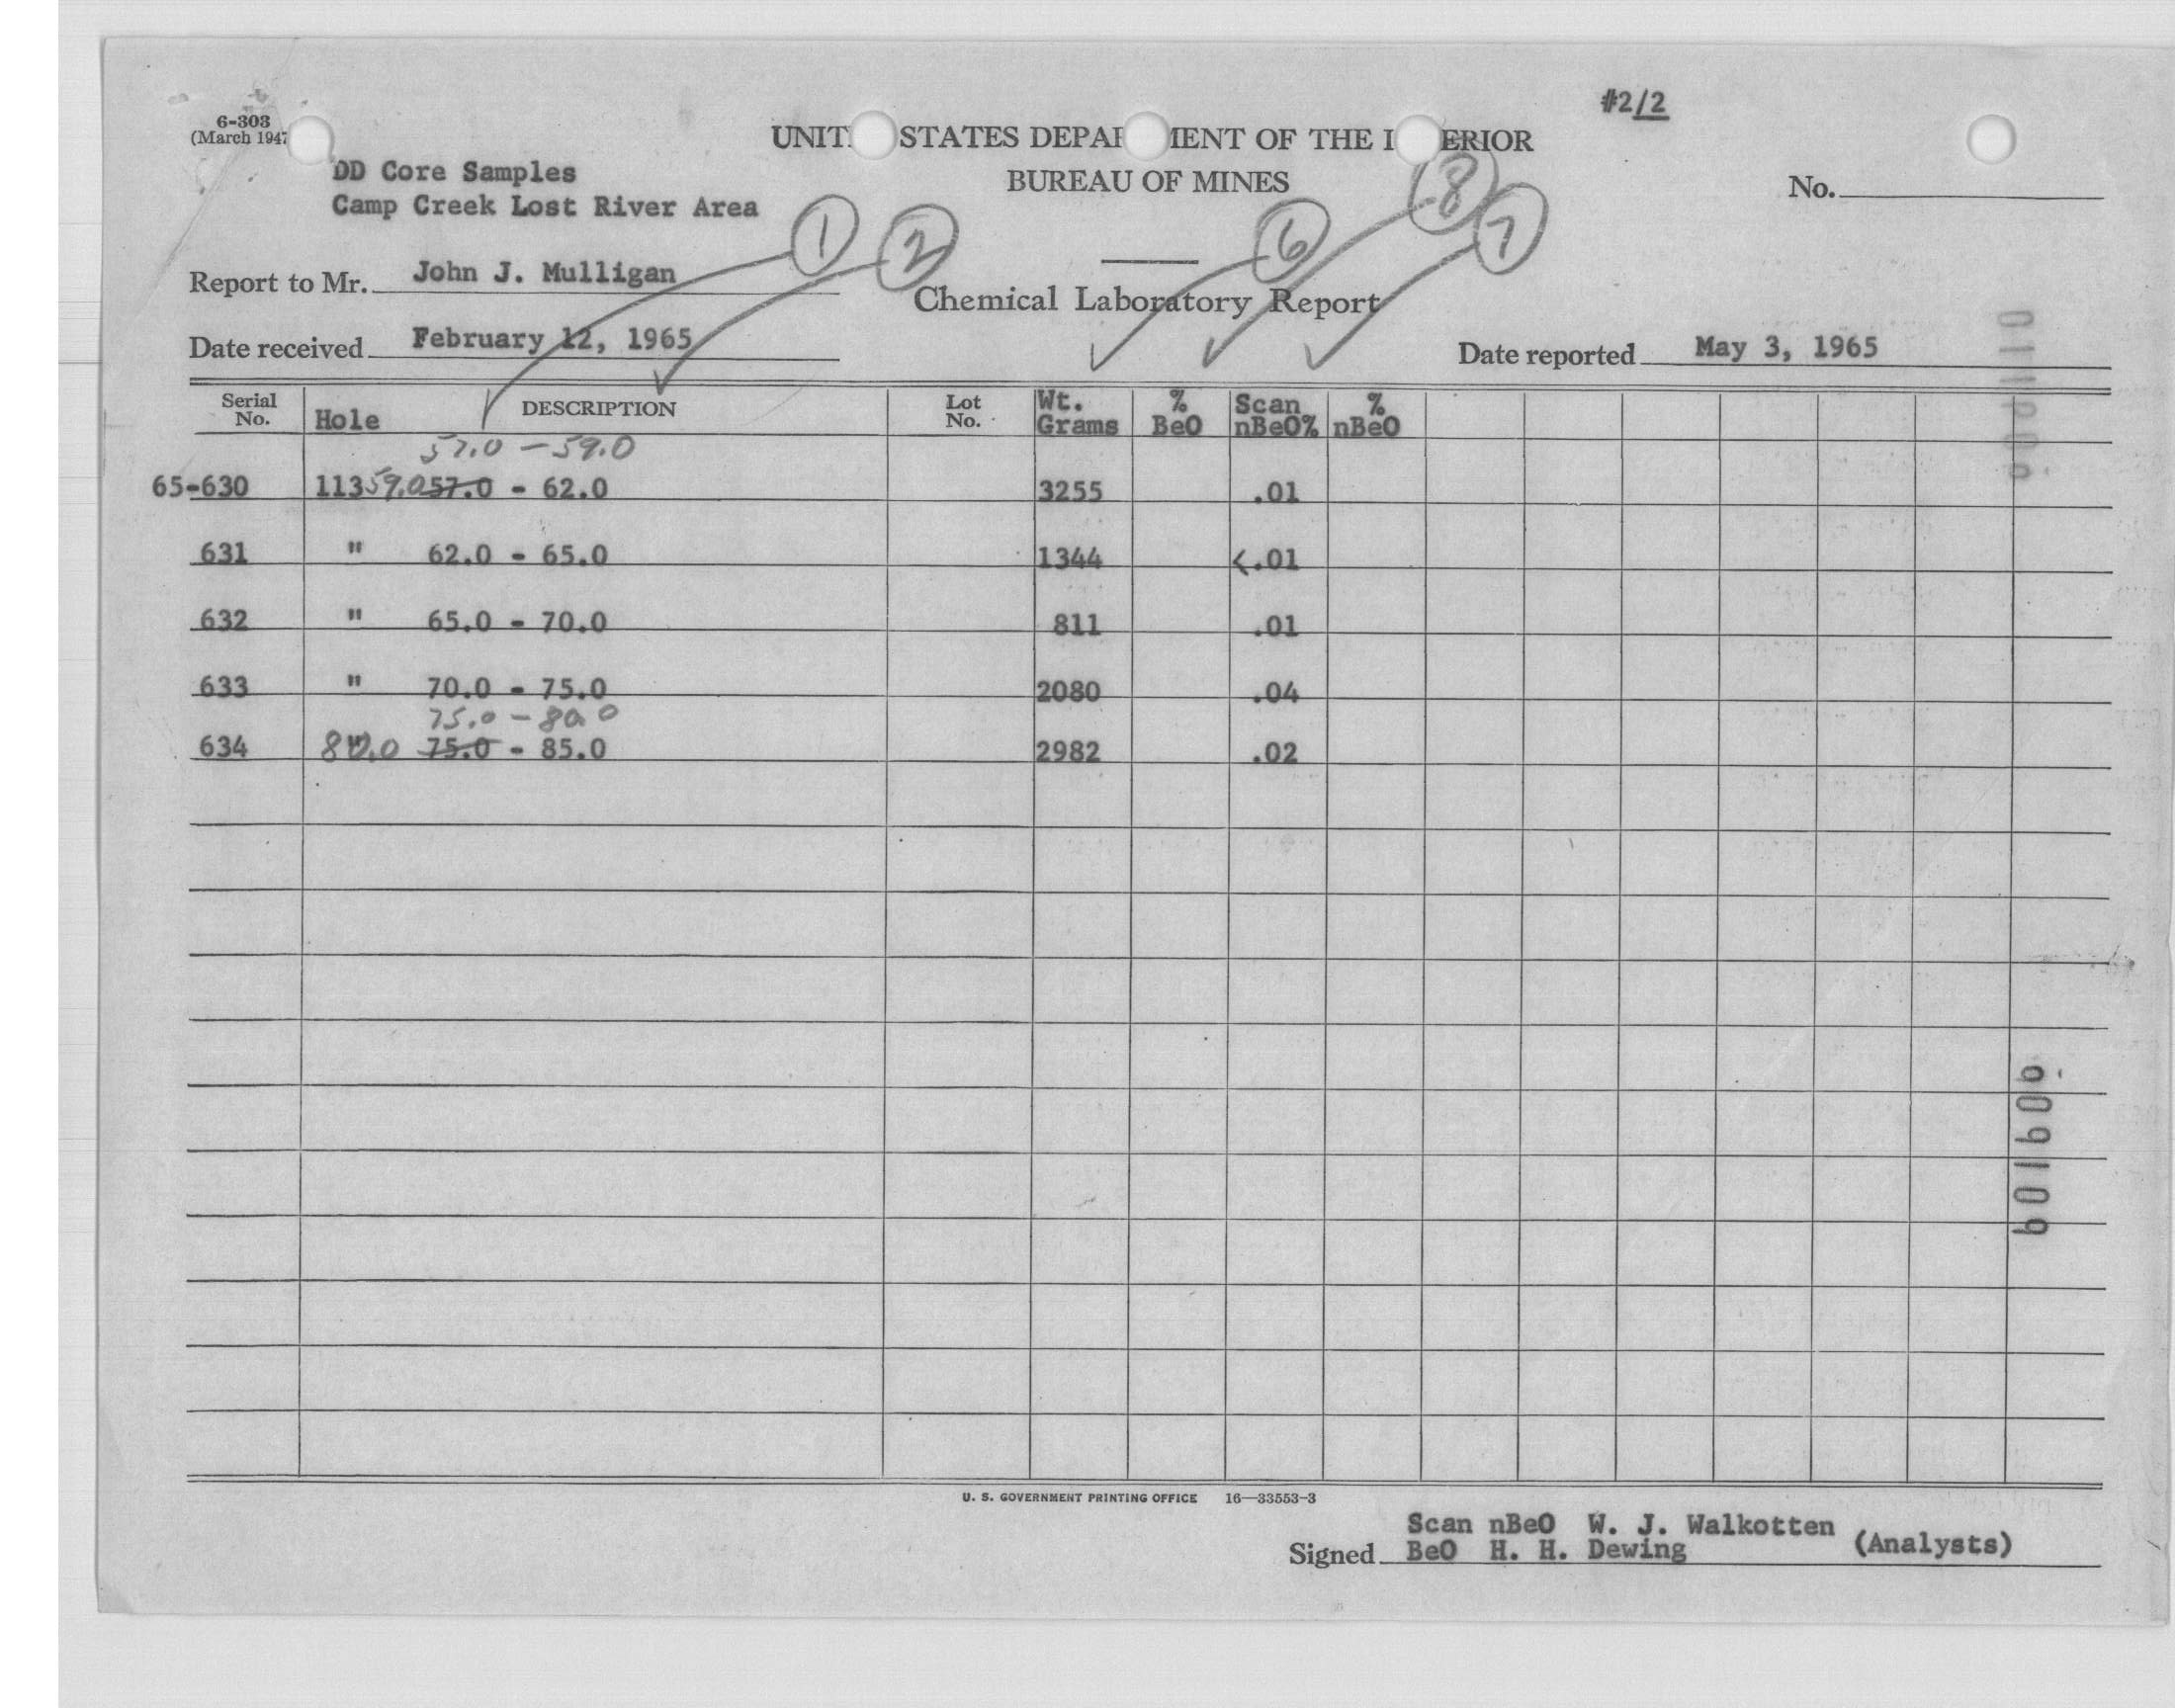 #2/2
6-303
(March 194
UNIT STATES DEPA MENT OF THE I ERIOR
DD Core Samples
BUREAU OF MINES
No.
Camp Creek Lost River Area
1 2 6 8 7
Report to Mr. John J. Mulligan
Chemical Laboratory Report
Date received February 12, 1965
Date reported May 3, 1965
Serial No. Hole DESCRIPTION Lot No. Wt. Grams % BeO Scan nBeO% % nBeO
57.0 - 59.0
65-630 113 59.0 57.0 - 62.0 3255 .01
631 " 62.0 - 65.0 1344 <.01
632 " 65.0 - 70.0 811 .01
633 " 70.0 - 75.0 2080 .04
75.0 - 80.0
634 " 80.0 75.0 - 85.0 2982 .02
U. S. GOVERNMENT PRINTING OFFICE 16—33553-3
Scan nBeO W. J. Walkotten
Signed BeO H. H. Dewing (Analysts)